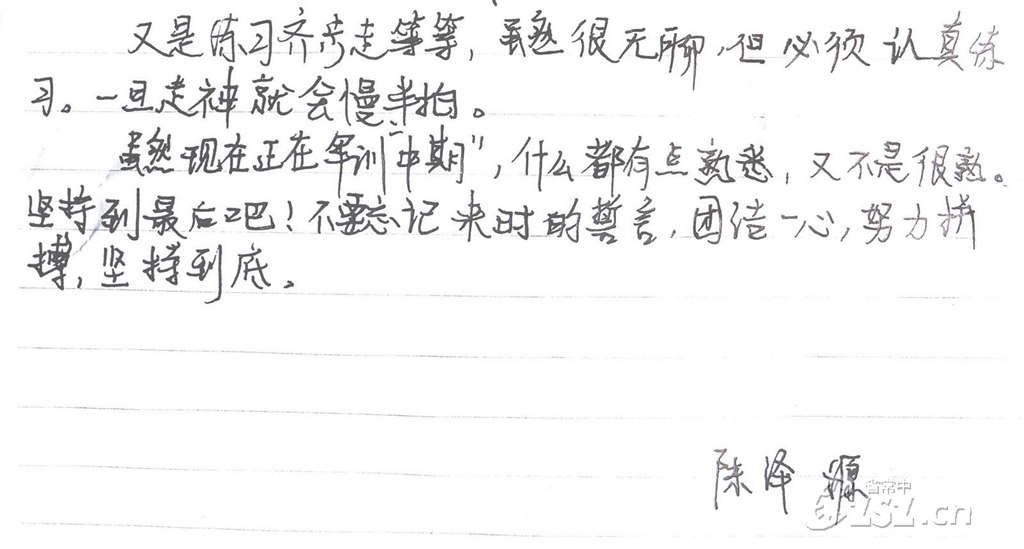 又是练习齐步走等等，虽然很无聊，但必须认真练
习。一旦走神就会慢半拍。
虽然现在正在军训“中期”，什么都有点熟悉，又不是很熟。
坚持到最后吧！不要忘记来时的誓言，团结一心，努力拼
搏，坚持到底。
陈泽源
省常中
CZSZ.cn